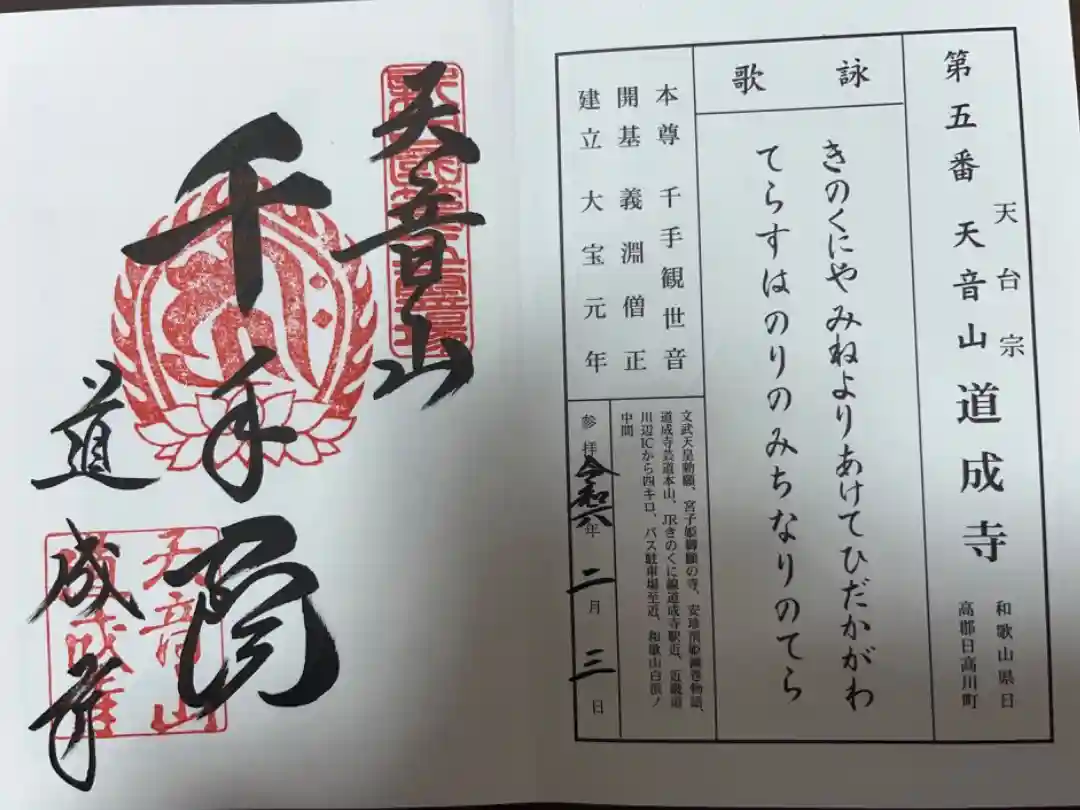 第五番 天音山 道成寺
天台宗
和歌山県日
高郡日高川町
詠歌
きのくにやみねよりあけてひだかがわ
てらすはのりのみちなりのてら
本尊 千手観世音
開基 義淵僧正
建立 大宝元年
文武天皇勅願、宮子姫御願の寺、安珍清姫鐘巻物語、
道成寺芸道本山、JRきのくに線道成寺駅近、近畿道
川辺ICから四キロ、バス駐車場至近、和歌山白浜ノ
中間
参拝 令和六年 二月 三日
天音山
千手
道成寺